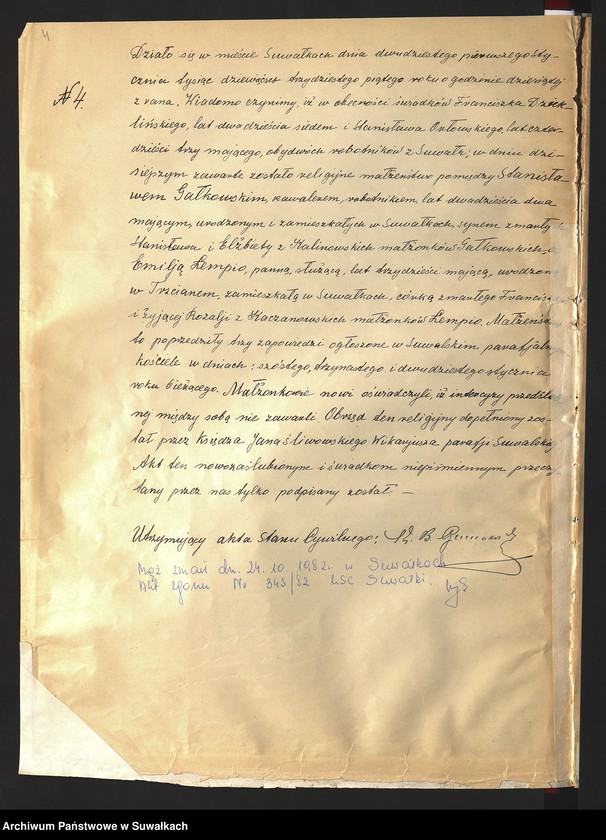 4
№ 4.
Działo się w mieście Suwałkach dnia dwudziestego pierwszego sty-
cznia tysiąc dziewięćset trzydziestego piątego roku o godzinie dziesiątej
z rana. Wiadomo czynimy, iż w obecności świadków Franciszka Dziek-
lińskiego, lat dwadzieścia siedem i Stanisława Orłowskiego, lat czter-
dzieści trzy mającego, obydwóch robotników z Suwałk; w dniu dzi-
siejszym zawarte zostało religijne małżeństwo pomiędzy Stanisła-
wem Gałkowskim, kawalerem, robotnikiem, lat dwadzieścia dwa
mającym, urodzonym i zamieszkałym w Suwałkach, synem zmarłych
Stanisława i Elżbiety z Kalinowskich małżonków Gałkowskich, a
Emilją Łempio, panną, służącą, lat trzydzieści mającą, urodzoną
w Trzcianem, zamieszkałą w Suwałkach, córką zmarłego Francisz
i żyjącej Rozalji z Kaczanowskich małżonków Łempio. Małżeńst
to poprzedziły trzy zapowiedzi ogłoszone w Suwalskim parafjalnym
kościele w dniach: szóstego, trzynastego i dwudziestego stycznia
roku bieżącego. Małżonkowie nowi oświadczyli, iż intercyzy przedślub-
nej między sobą nie zawarli. Obrzęd ten religijny dopełniony zos-
tał przez Księdza Jana Śliwowskiego Wikarjusza parafji Suwalskiej.
Akt ten nowozaślubionym i świadkom niepiśmiennym przeczy-
tany przez nas tylko podpisany został. —
Utrzymujący akta Stanu Cywilnego: Ks. B.
Mąż zmarł dn. 24.10.1982r. w Suwałkach
Akt zgonu Nr 345/82 USC Suwałki.
Archiwum Państwowe w Suwałkach